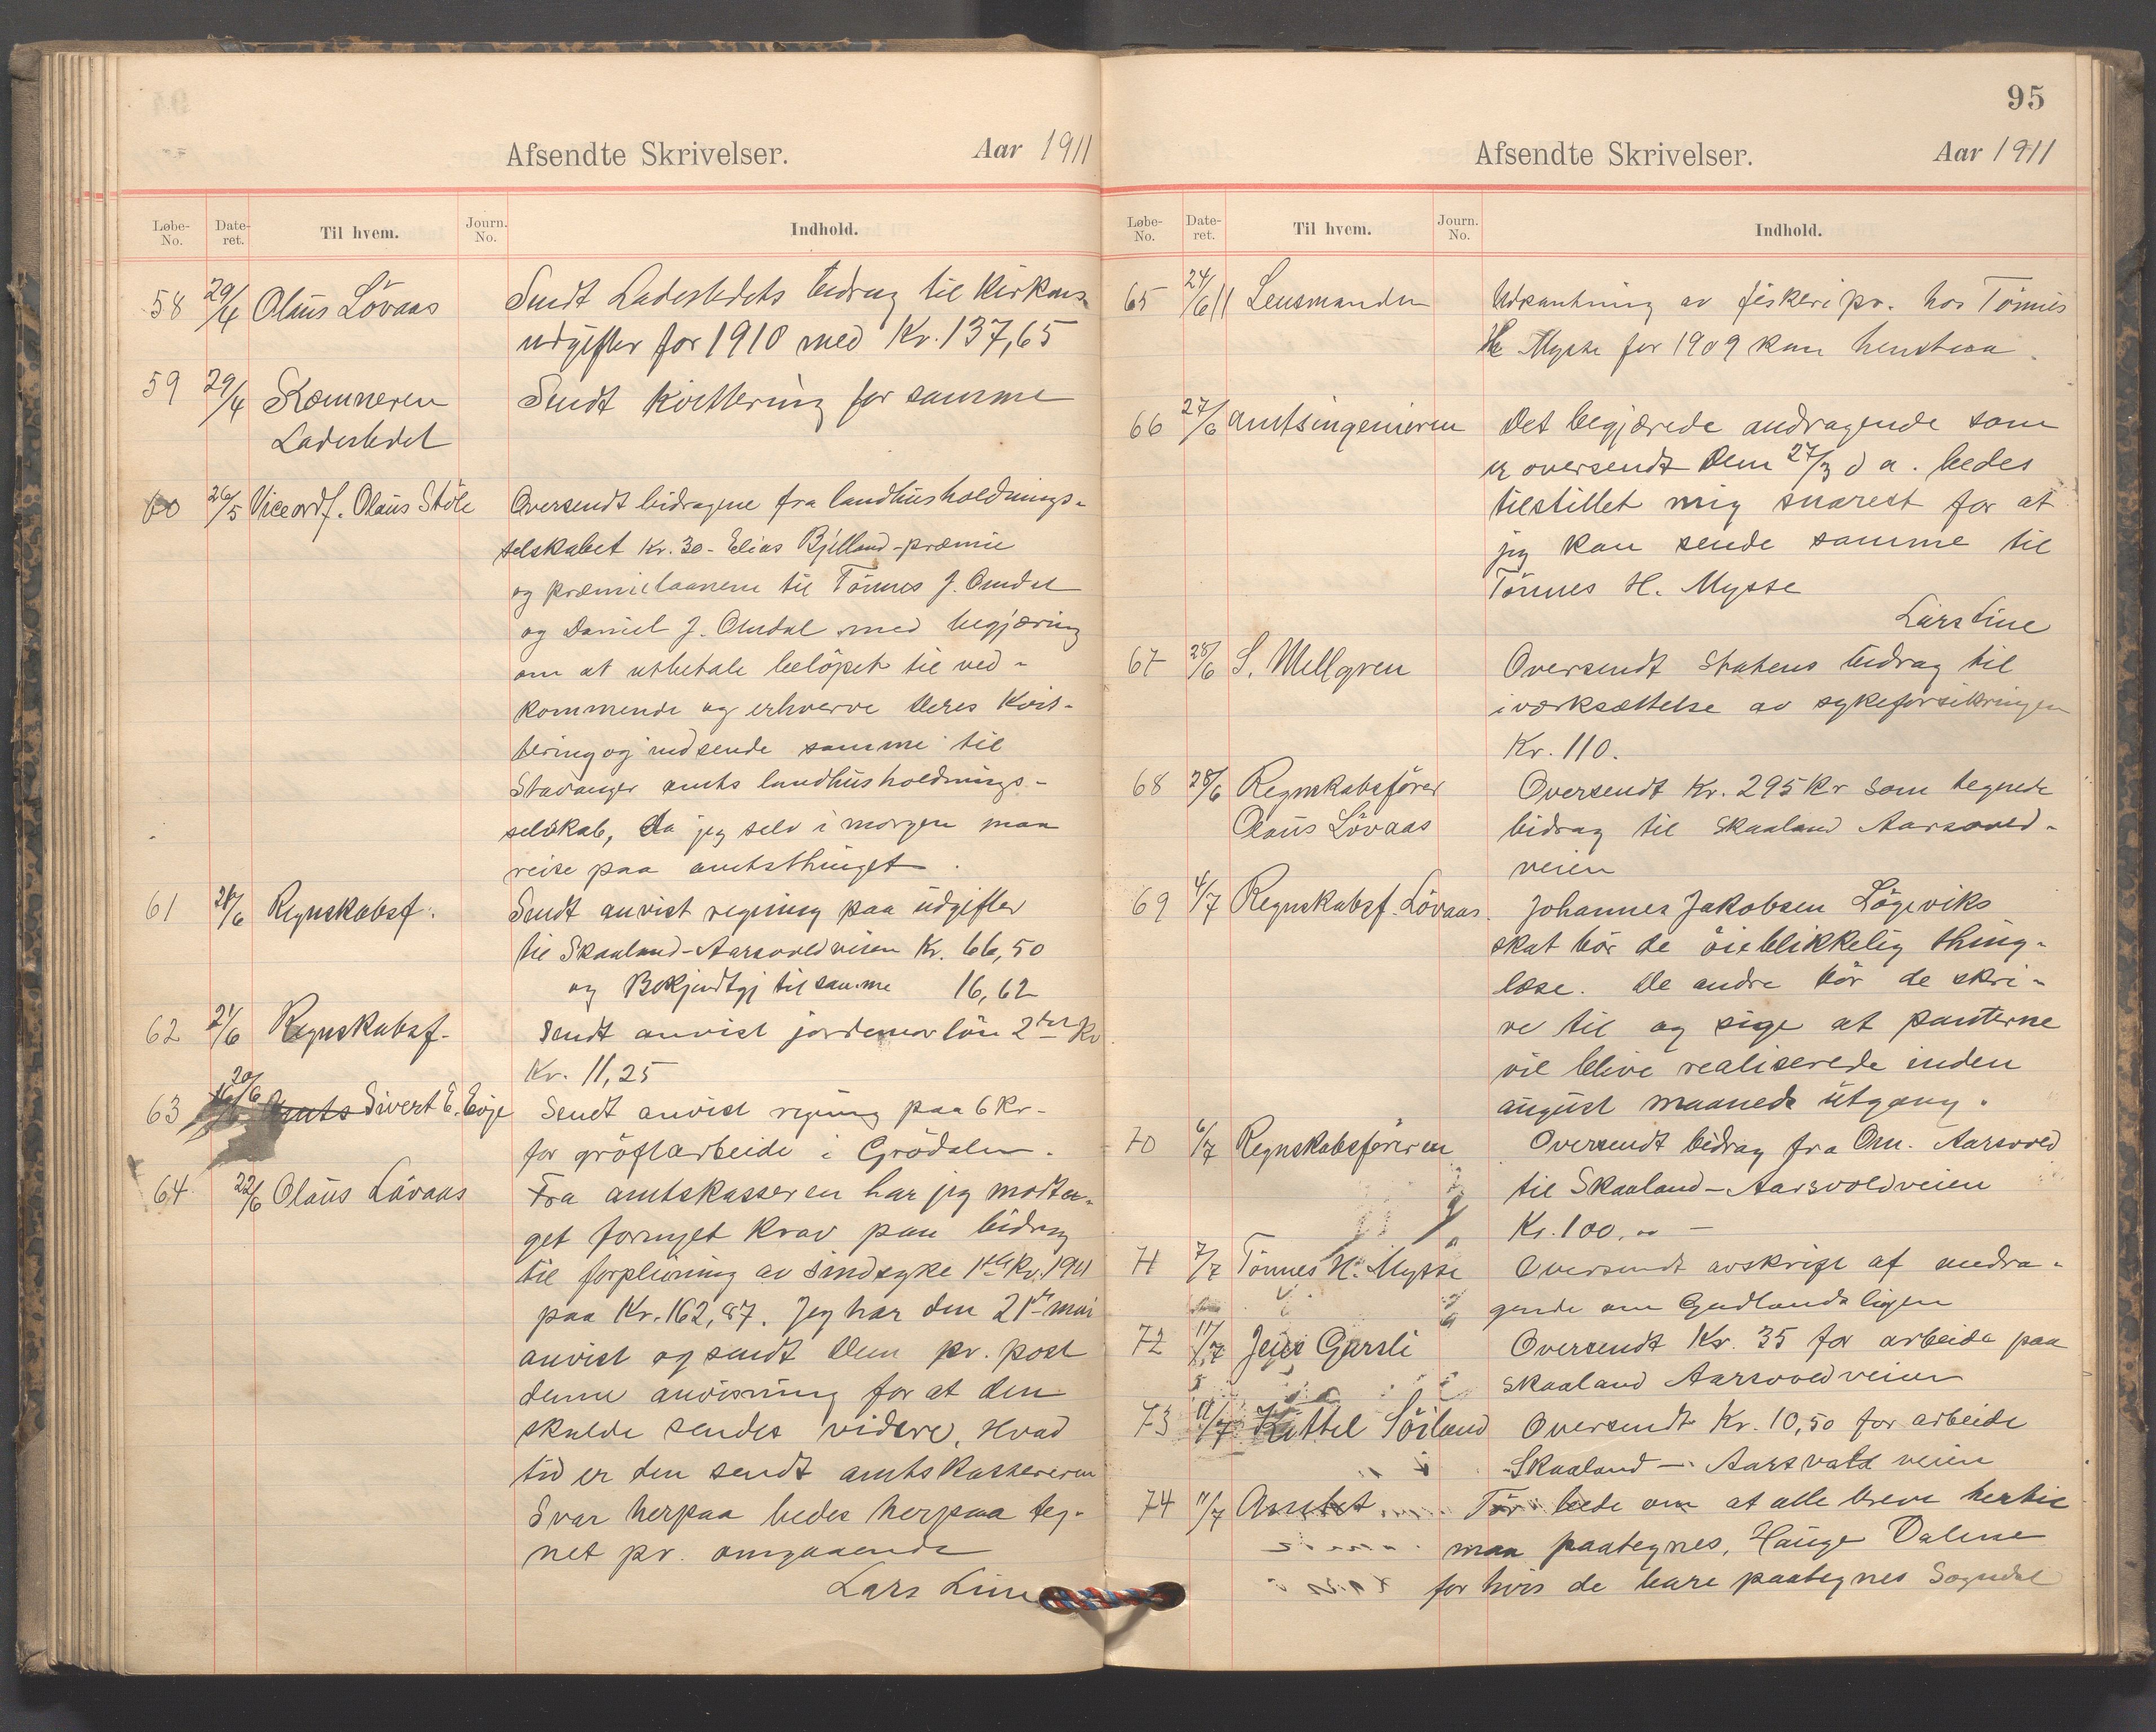 Afsendte Skrivelser. Aar 1911
Løbe-No. Date-ret. Til hvem. Journ. No. Indhold.
58 29/4 Olaus Lövaas Sendt Ladestedets bidrag til Kirkens
udgifter for 1910 med Kr. 137,65
59 29/4 Kæmneren Sendt Kvittering for samme
Ladestedet
60 26/5 Viceordf. Olaus Stöle Oversendt bidragene fra landhusholdnings-
selskabet Kr. 30 - Elias Bjelland - præmie
og præmielaanene til Tönnes J. Omdal
og Daniel J. Omdal med begjæring
om at utbetale belöpet til ved-
kommende og erhverve deres Kvit-
tering og indsende samme til
Stavanger amts landhusholdnings-
selskab, da jeg selv i morgen maa
reise paa amtsthinget.
61 21/6 Regnskabsf. Sendt anvist regning paa udgifter
til Skaaland-Aarsvoldveien Kr. 66,50
og Bekjendtgj til samme 16,62
62 21/6 Regnskabsf. Sendt anvist jordemorlön 2det Kv
Kr. 11,25
63 20/6 Amts Sivert E. Eöje Sendt anvist regning paa 6 Kr-
for gröftarbeide i Grödalen.
64 22/6 Olaus Lövaas Fra amtskasseren har jeg modta-
get fornyet Krav paa bidrag
til forpleining av sindsyke 1ste Kv. 1911
paa Kr. 162,87. Jeg har den 21de mai
anvist og sendt Dem pr. post
denne anvisning for at den
skulde sendes videre. Hvad
tid er den sendt amtskassereren
Svar herpaa bedes herpaa teg-
net pr. omgaaende
Lars Line
95
Afsendte Skrivelser. Aar 1911
Løbe-No. Date-ret. Til hvem. Journ. No. Indhold.
65 24/6 11 Lensmanden Utpantning av fiskeripr. hos Tönnes
H. Mysse for 1909 kan henstaa.
66 27/6 Amtsingeniören Det begjærede andragende som
er oversendt Dem 27/3 d a. bedes
tilstillet mig snarest for at
jeg kan sende samme til
Tönnes H. Mysse
Lars Line
67 28/6 S. Mellgren Oversendt Statens bidrag til
iværksættelse av sykeforsikringen
Kr. 110.
68 28/6 Regnskabsförer Oversendt Kr. 295 Kr som tegnede
Olaus Lövaas bidrag til Skaaland Aarsvold-
veien
69 4/7 Regnskabsf. Lövaas. Johannes Jakobsen Lögeviks
skat bör de öieblikkelig thing-
læse. De andre bör de skri-
ve til og sige at panterne
vil blive realiserede inden
august maaneds utgang.
70 6/7 Regnskabsföreren Oversendt bidrag fra Om. Aarsvold
til Skaaland-Aarsvoldveien
Kr. 100,00 -
71 7/7 Tönnes H. Mysse Oversendt avskrift af andra-
gende om
72 11/7 Jens Garsli Oversendt Kr. 35 for arbeide paa
Skaaland Aarsvoldveien
73 11/7 Kittel Söiland Oversendt Kr. 10,50 for arbeide
Skaaland - Aarsvold veien
74 11/7 Amtet Tör bede om at alle breve hertil
maa paategnes, Hauge Dalene
for hvis de bare paategnes Sogndal